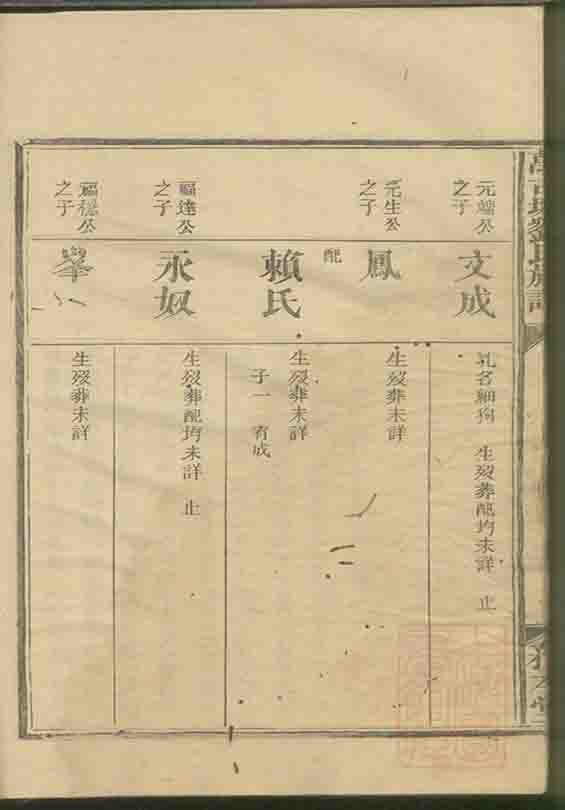 元端公
之子
文成
乳名細狗 生歿葬配均未詳 止
元生公
之子
鳳
生歿葬未詳
配
賴氏
生歿葬未詳
子一 有成
福達公
之子
永奴
生歿葬配均未詳 止
福穩公
之子
舉
生歿葬未詳